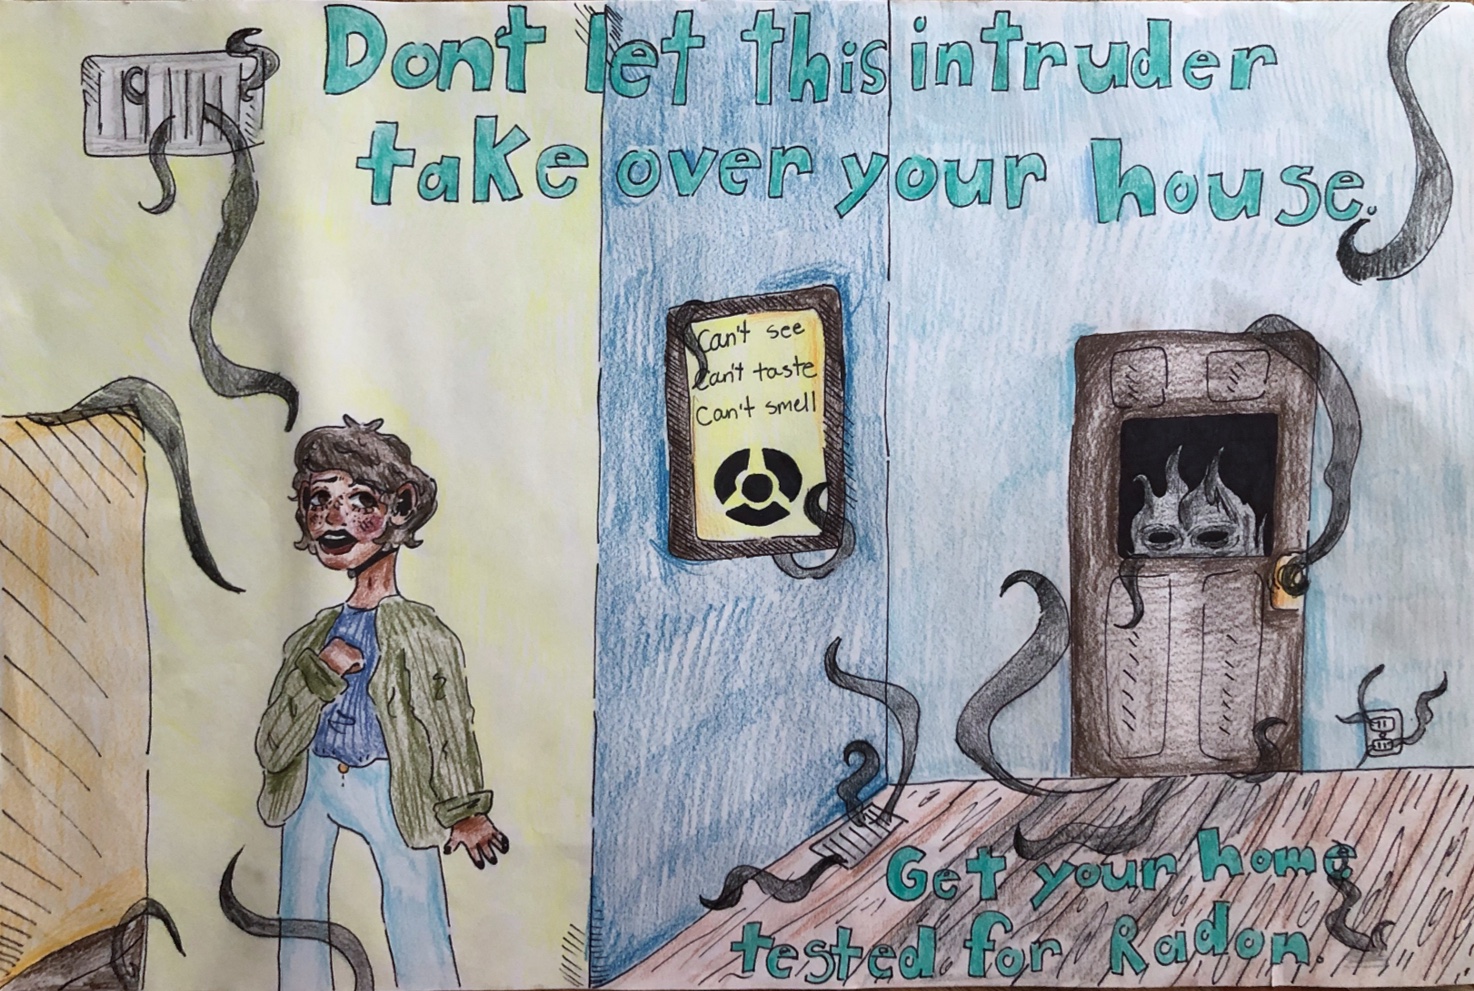 Dont let this intruder
take over your house.
Can't see
Can't taste
Can't smell
Get your home
tested for Radon.